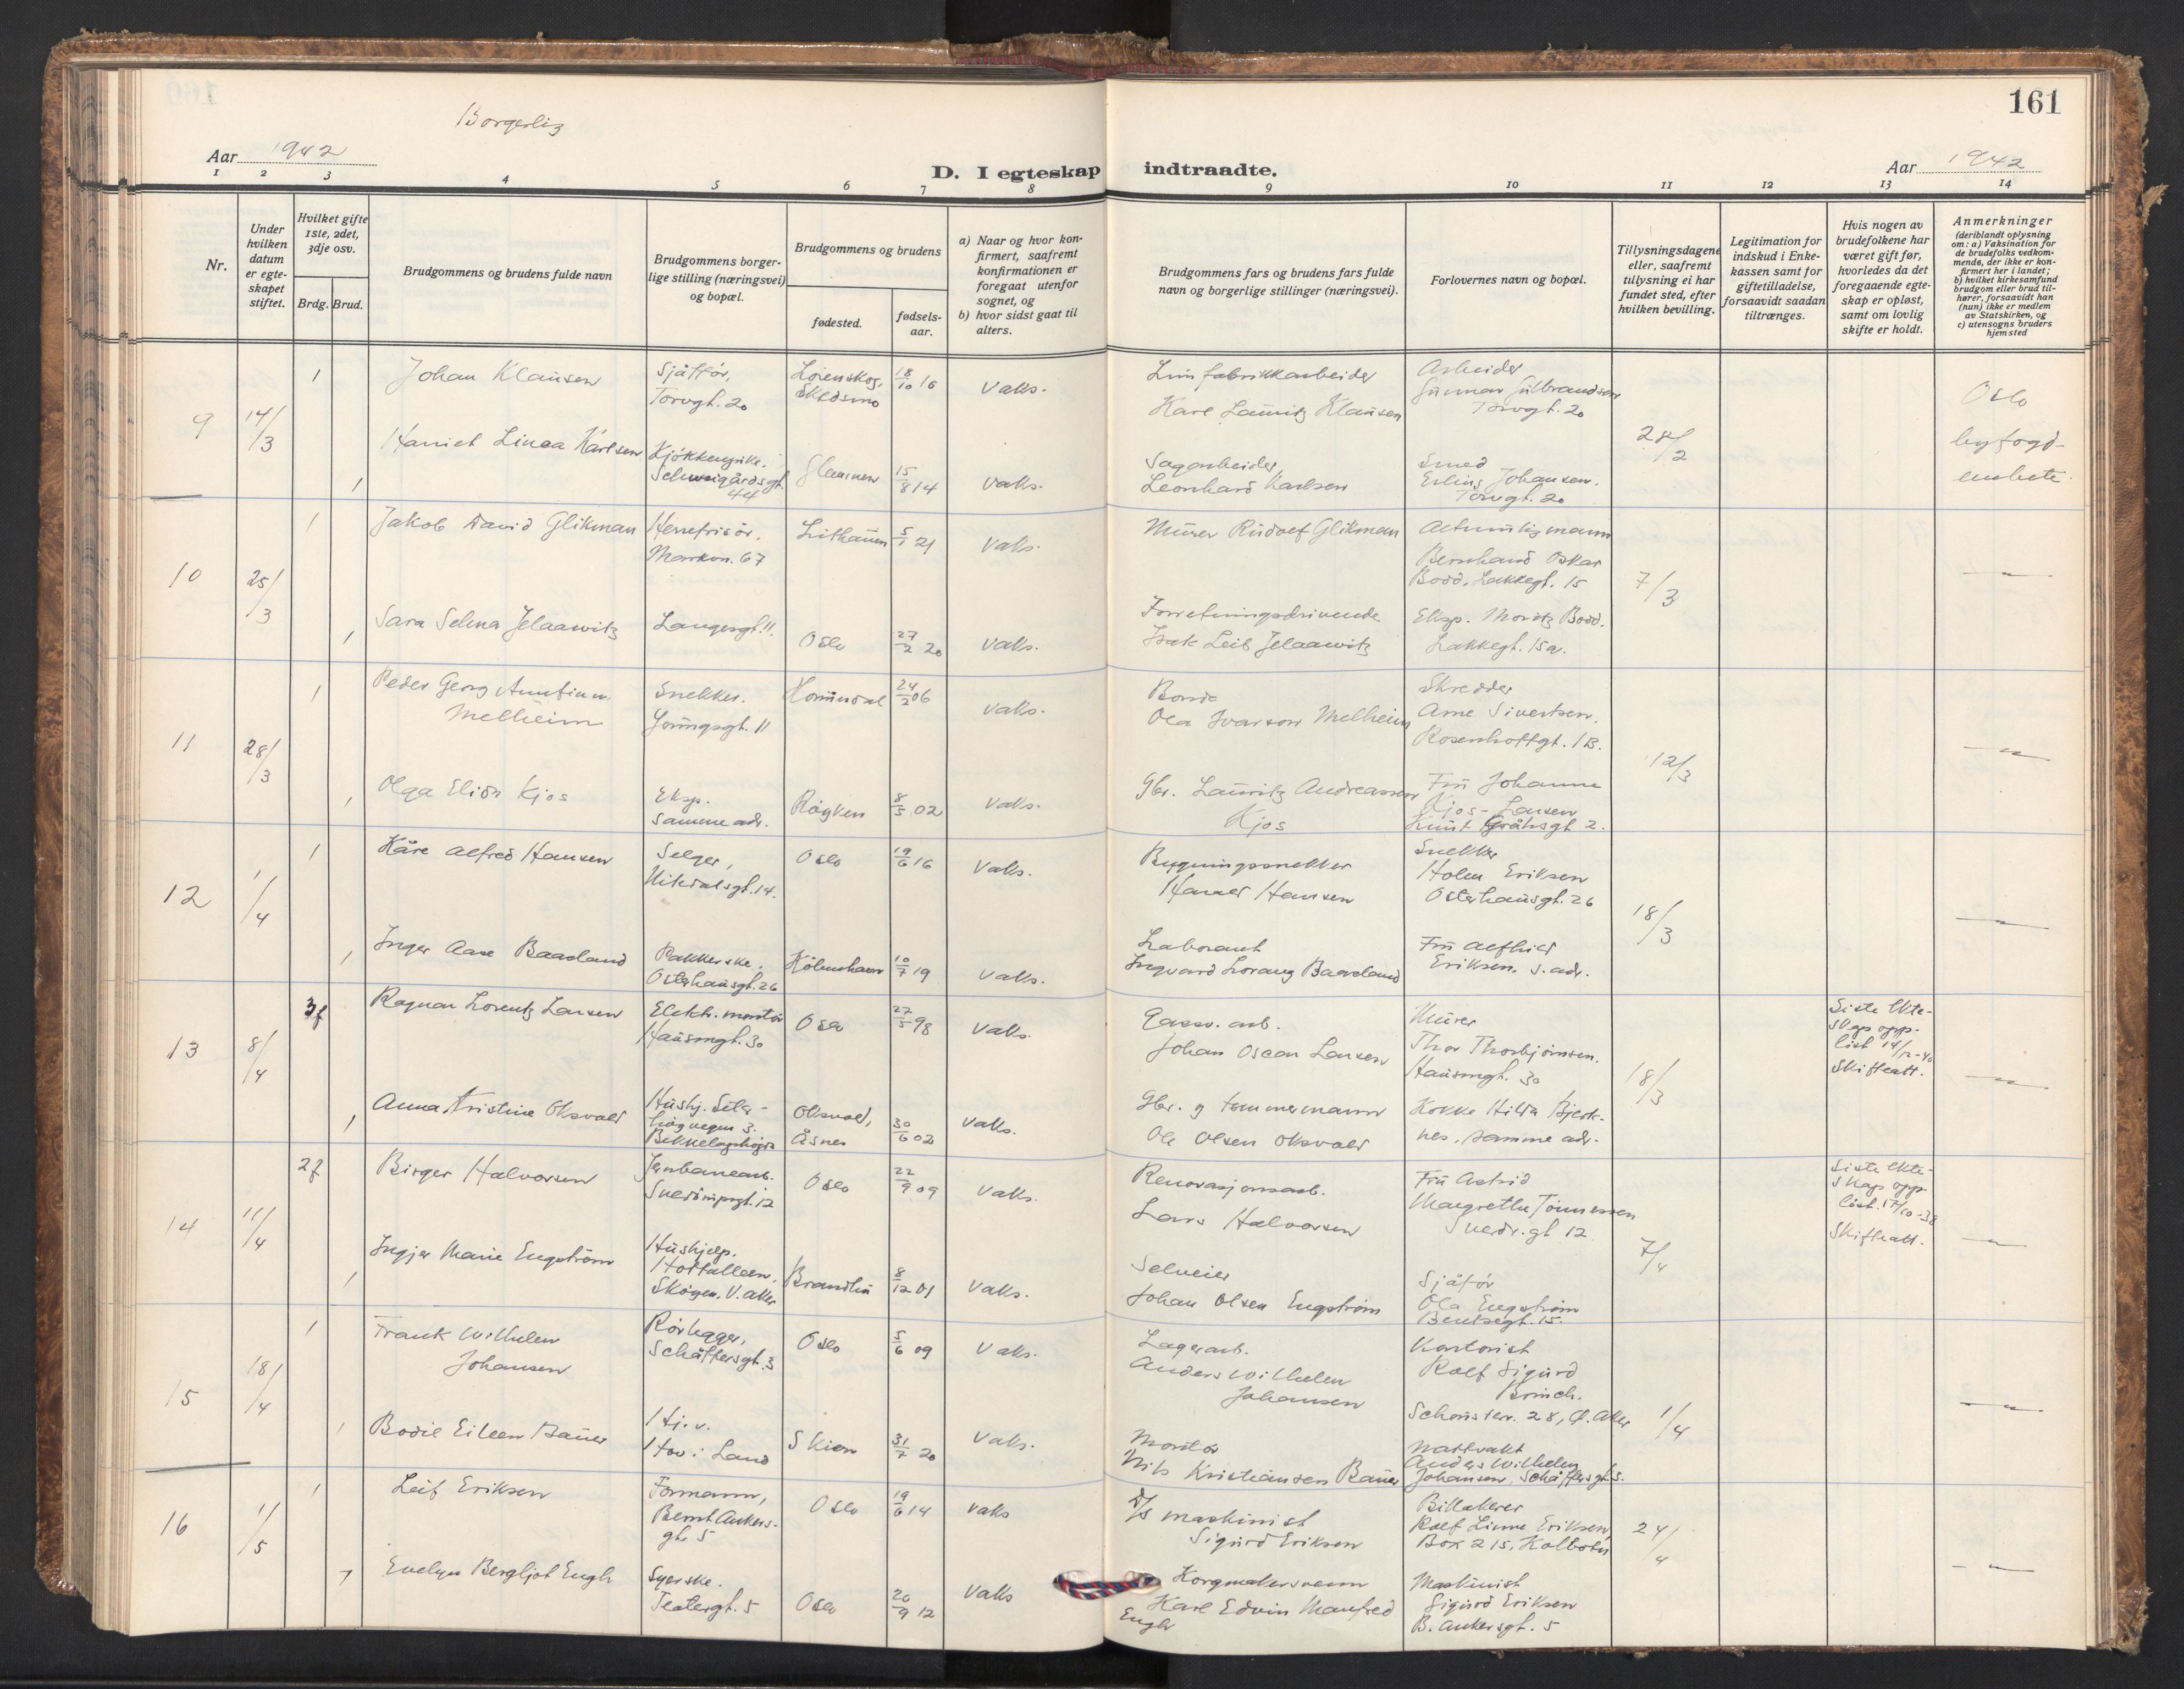 161
Borgerlig
Aar 1942
D. I egteskap indtraadte.
Aar 1942
1 2 3 4 5 6 7 8 9 10 11 12 13 14
Nr.
Under hvilken datum er egte-skapet stiftet.
Hvilket gifte 1ste, 2det, 3dje osv.
Brdg. Brud.
Brudgommens og brudens fulde navn
Brudgommens borger-lige stilling (næringsvei) og bopæl.
Brudgommens og brudens
fødested.
fødsels-aar.
a) Naar og hvor kon-firmert, saafremt konfirmationen er foregaat utenfor sognet, og
b) hvor sidst gaat til alters.
Brudgommens fars og brudens fars fulde navn og borgerlige stillinger (næringsvei).
Forlovernes navn og bopæl.
Tillysningsdagene eller, saafremt tillysning ei har fundet sted, efter hvilken bevilling.
Legitimation for indskud i Enke-kassen samt for giftetilladelse, forsaavidt saadan tiltrænges.
Hvis nogen av brudefolkene har været gift før, hvorledes da det foregaaende egte-skap er opløst, samt om lovlig skifte er holdt.
Anmerkninger
(deriblandt oplysning om: a) Vaksination for de brudefolks vedkom-mende, der ikke er kon-firmert her i landet; b) hvilket kirkesamfund brudgom eller brud til-hører, forsaavidt han (hun) ikke er medlem av Statskirken, og c) utensogns bruders hjemsted
9 14/3
1 Johan Klausen
Sjåffør, Torvgt. 20
Lørenskog, Skedsmo
18/10 16
Vaks.
Limfabrikkarbeider Karl Lauritz Klausen
Arbeider Gunnar Gulbrandsen Torvgt. 20
28/2
Oslo byfogd-embete.
1 Harriet Linea Karlsen
Schweigårdsgt. 44
Glemmen
15/8 14
Vaks.
Sagarbeider, Leonhard Karlsen
Smed Erling Johansen. Torvgt. 20
10 25/3
1 Jakob David Glikman
Herrefrisör. Markvn. 67
Lithauen
5/1 21
Vaks.
Murer Rudolf Glikman
Bernhard Oskar Bodd. Lakkegt. 15
7/3
—"—
1 Sara Selma Jelaawitz
Langesgt. 11.
Oslo
27/2 20
Vaks.
Forretningsdrivende Isak Leib Jelaawitz
Eksp. Moritz Bodd. Lakkegt. 15a.
11 28/3
1 Peder Georg Annfinn Melheim
Snekker. Youngsgt. 11
Hornindal
24/2 06
Vaks.
Bonde Ola Ivarson Melheim
Skredder Arne Sivertsen. Rosenhoffgt. 1B.
12/3
—"—
1 Olga Elida Kjos
Eksp. samme adr.
Røyken
8/5 02
Vaks.
Gbr. Lauritz Andreassen Kjos
Fru Johanne Kjos-Larsen
12 1/4
1 Kåre Alfred Hansen
Selger, Nitedalsgt. 14.
Oslo
19/6 16
Vaks.
Bygningssnekker Harald Hansen
Snekker Holm Eriksen Osterhausgt. 26
18/3
—"—
1 Inger Aase Baadsland
Pakkerske, Osterhausgt. 26
Köbenhavn
10/7 19
Vaks.
Laborant Ingvard Lorang Baadsland
Fru Alfhild Eriksen. s. adr.
13 8/4
3g Ragnar Lorentz Larsen
Elektr. montør Hausmgt. 30
Oslo
27/5 98
Vaks.
Gassv. arb. Johan Oscar Larsen
Murer Thor Thorbjørnsen. Hausmgt. 30
18/3
Siste ekte-skap opp-løst 14/12-40 Skifteatt.
—"—
1 Anna Kristine Oksvold
Hushj. Bekkelagshøgda
Oksvold, Åsnes
30/6 02
Vaks.
Gbr. og tømmermann Ole Olsen Oksvold
Kokke Hilda Bjerk-nes, samme adr.
14 11/4
2g Birger Halvorsen
Jernbanearb. Sverdrupsgt. 12
Oslo
22/9 09
Vaks.
Renovasjonsarb. Lars Halvorsen
Fru Astrid Margrethe Tønnessen Sverdr.gt 12
7/4
Siste ekte-skap opp-løst. 17/10-38 Skifteatt.
—"—
1 Ingjer Marie Engström
Hushjelp. Hoffalleen, Skøyen. V. Aker
Brandbu
8/12 01
Vaks.
Selveier Johan Olsen Engström
Sjåfør Ola Engström Bentsegt. 15.
15 18/4
1 Frank Wilhelm Johansen
Rørlegger, Schåffersgt. 3
Oslo
5/6 09
Vaks.
Lagerarb. Anders Wilhelm Johansen
Kontorist Rolf Sigurd Brinch. Schousterr. 28, Ø. Aker
1/4
—"—
1 Bodil Eileen Bauer
Hj.v. Hov i Land
Skien
31/7 20
Vaks.
Montör Nils Kristiansen Bauer
Nattvakt Anders Wilhelm Johansen, Schåffersgt. 3.
16 1/5
1 Leif Eriksen
Formann, Bernt Ankers-gt. 5
Oslo
19/6 14
Vaks
D/S maskinist Sigurd Eriksen
Billakerer Rolf Linne Eriksen, Box 215, Kolbotn
24/4
—"—
1 Evelyn Bergljot Engh
Syerske. Teatergt. 5
Oslo
20/9 12
Vaks
Korgmakersvenn Karl Edvin Manfred Engh
Maskinist Sigurd Eriksen B. Ankersgt. 5